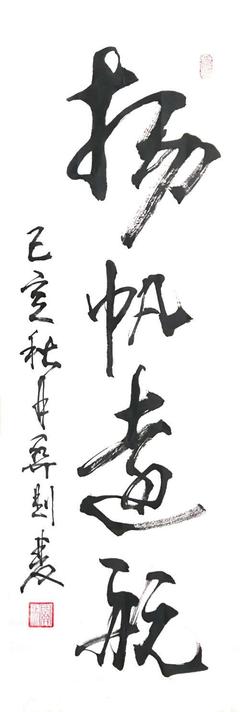 扬帆远航
己亥秋月